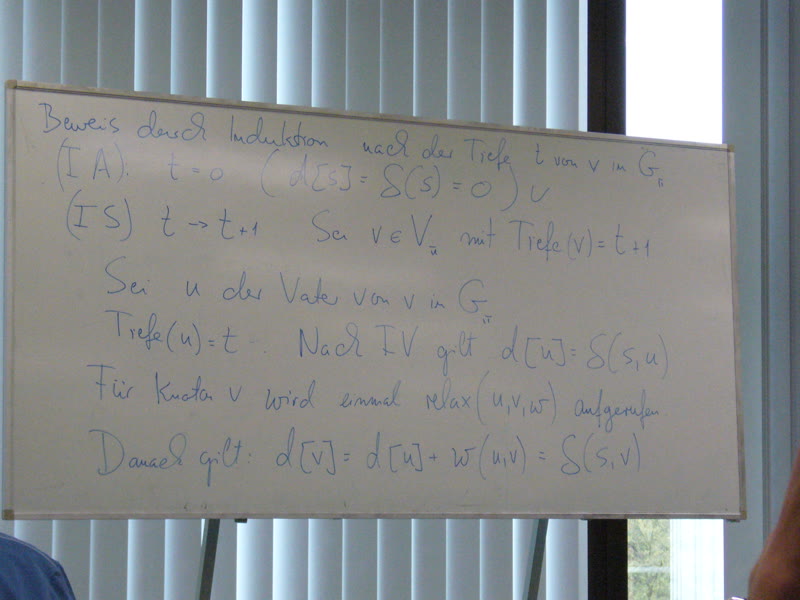 Beweis durch Induktion nach der Tiefe t von v in G_π
(I A): t=0 ( d[s] = δ(s) = 0 ) ✓
(I S) t → t+1 Sei v ∈ V_π mit Tiefe(v) = t+1
Sei u der Vater von v in G_π
Tiefe(u) = t. Nach IV gilt d[u] = δ(s,u)
Für Knoten v wird einmal relax(u,v,w) aufgerufen
Danach gilt: d[v] = d[u] + w(u,v) = δ(s,v)